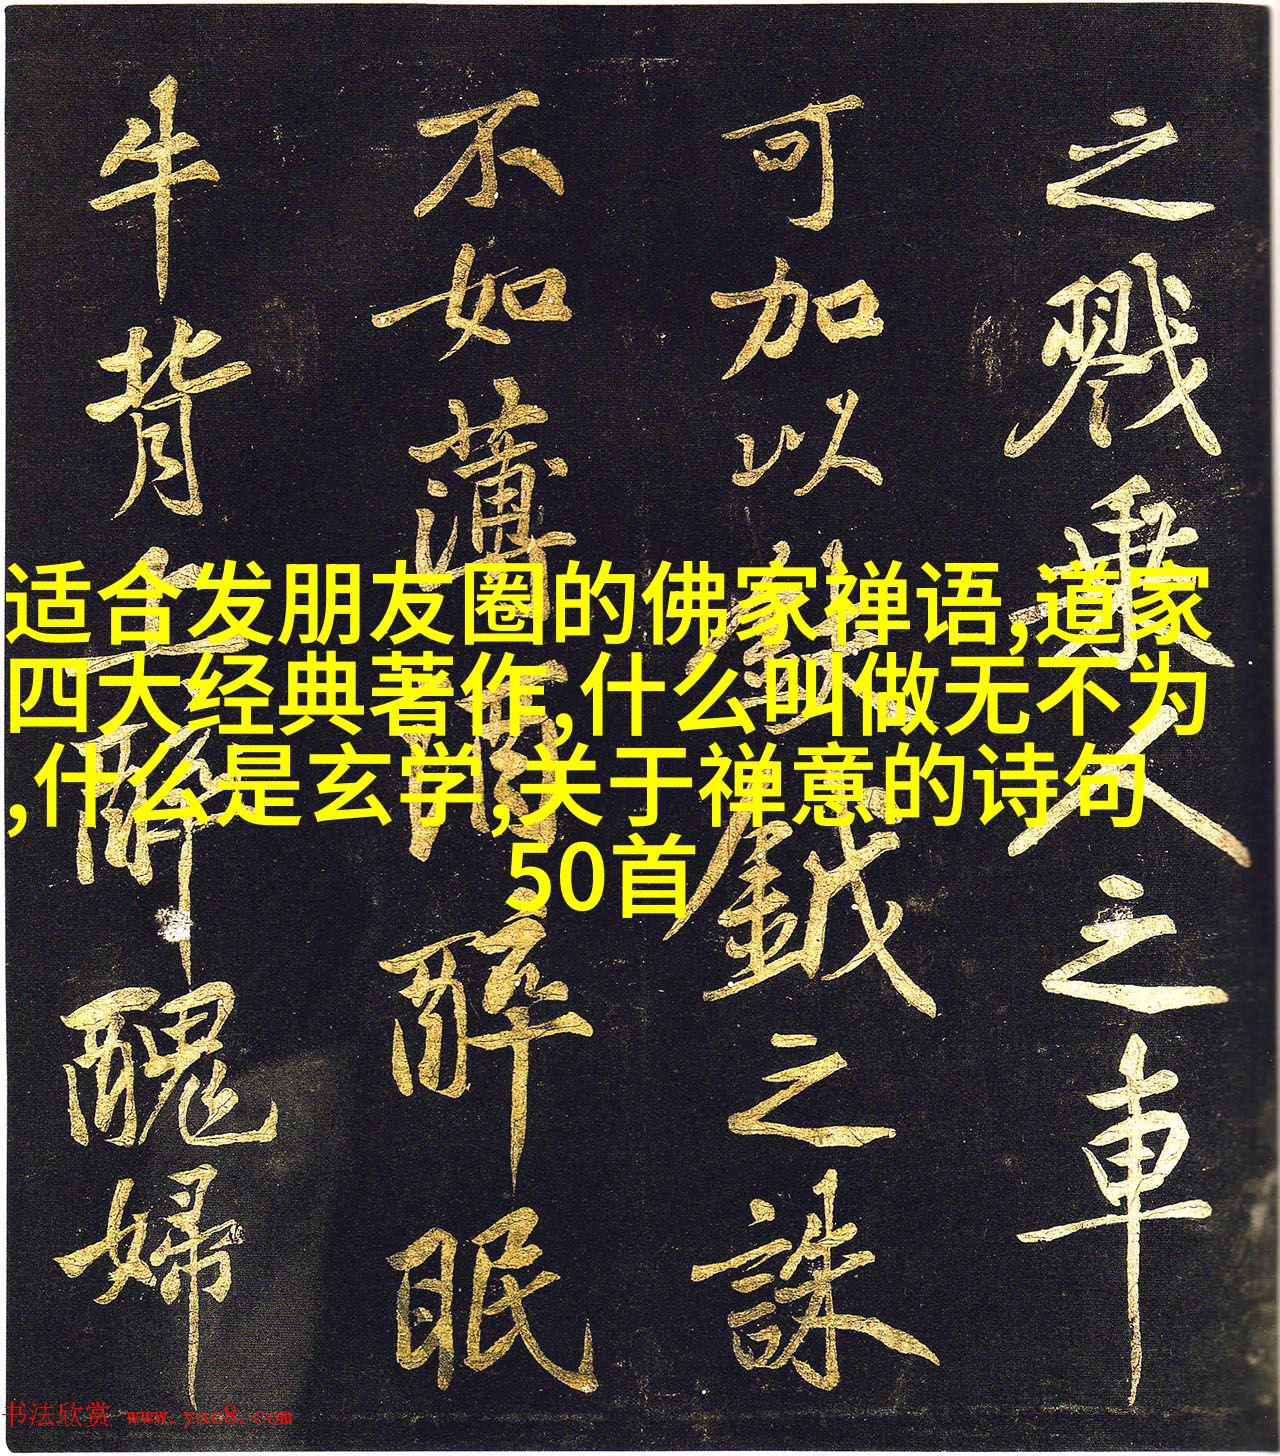 适合发朋友圈的佛家禅语,道家
四大经典著作,什么叫做无不为
,什么是玄学,关于禅意的诗句
50首
之戮乘人之車
可加以鈇鉞之誅
不如薄酒醉眠
牛背上醉醜婦
书法欣赏 www.yac8.com